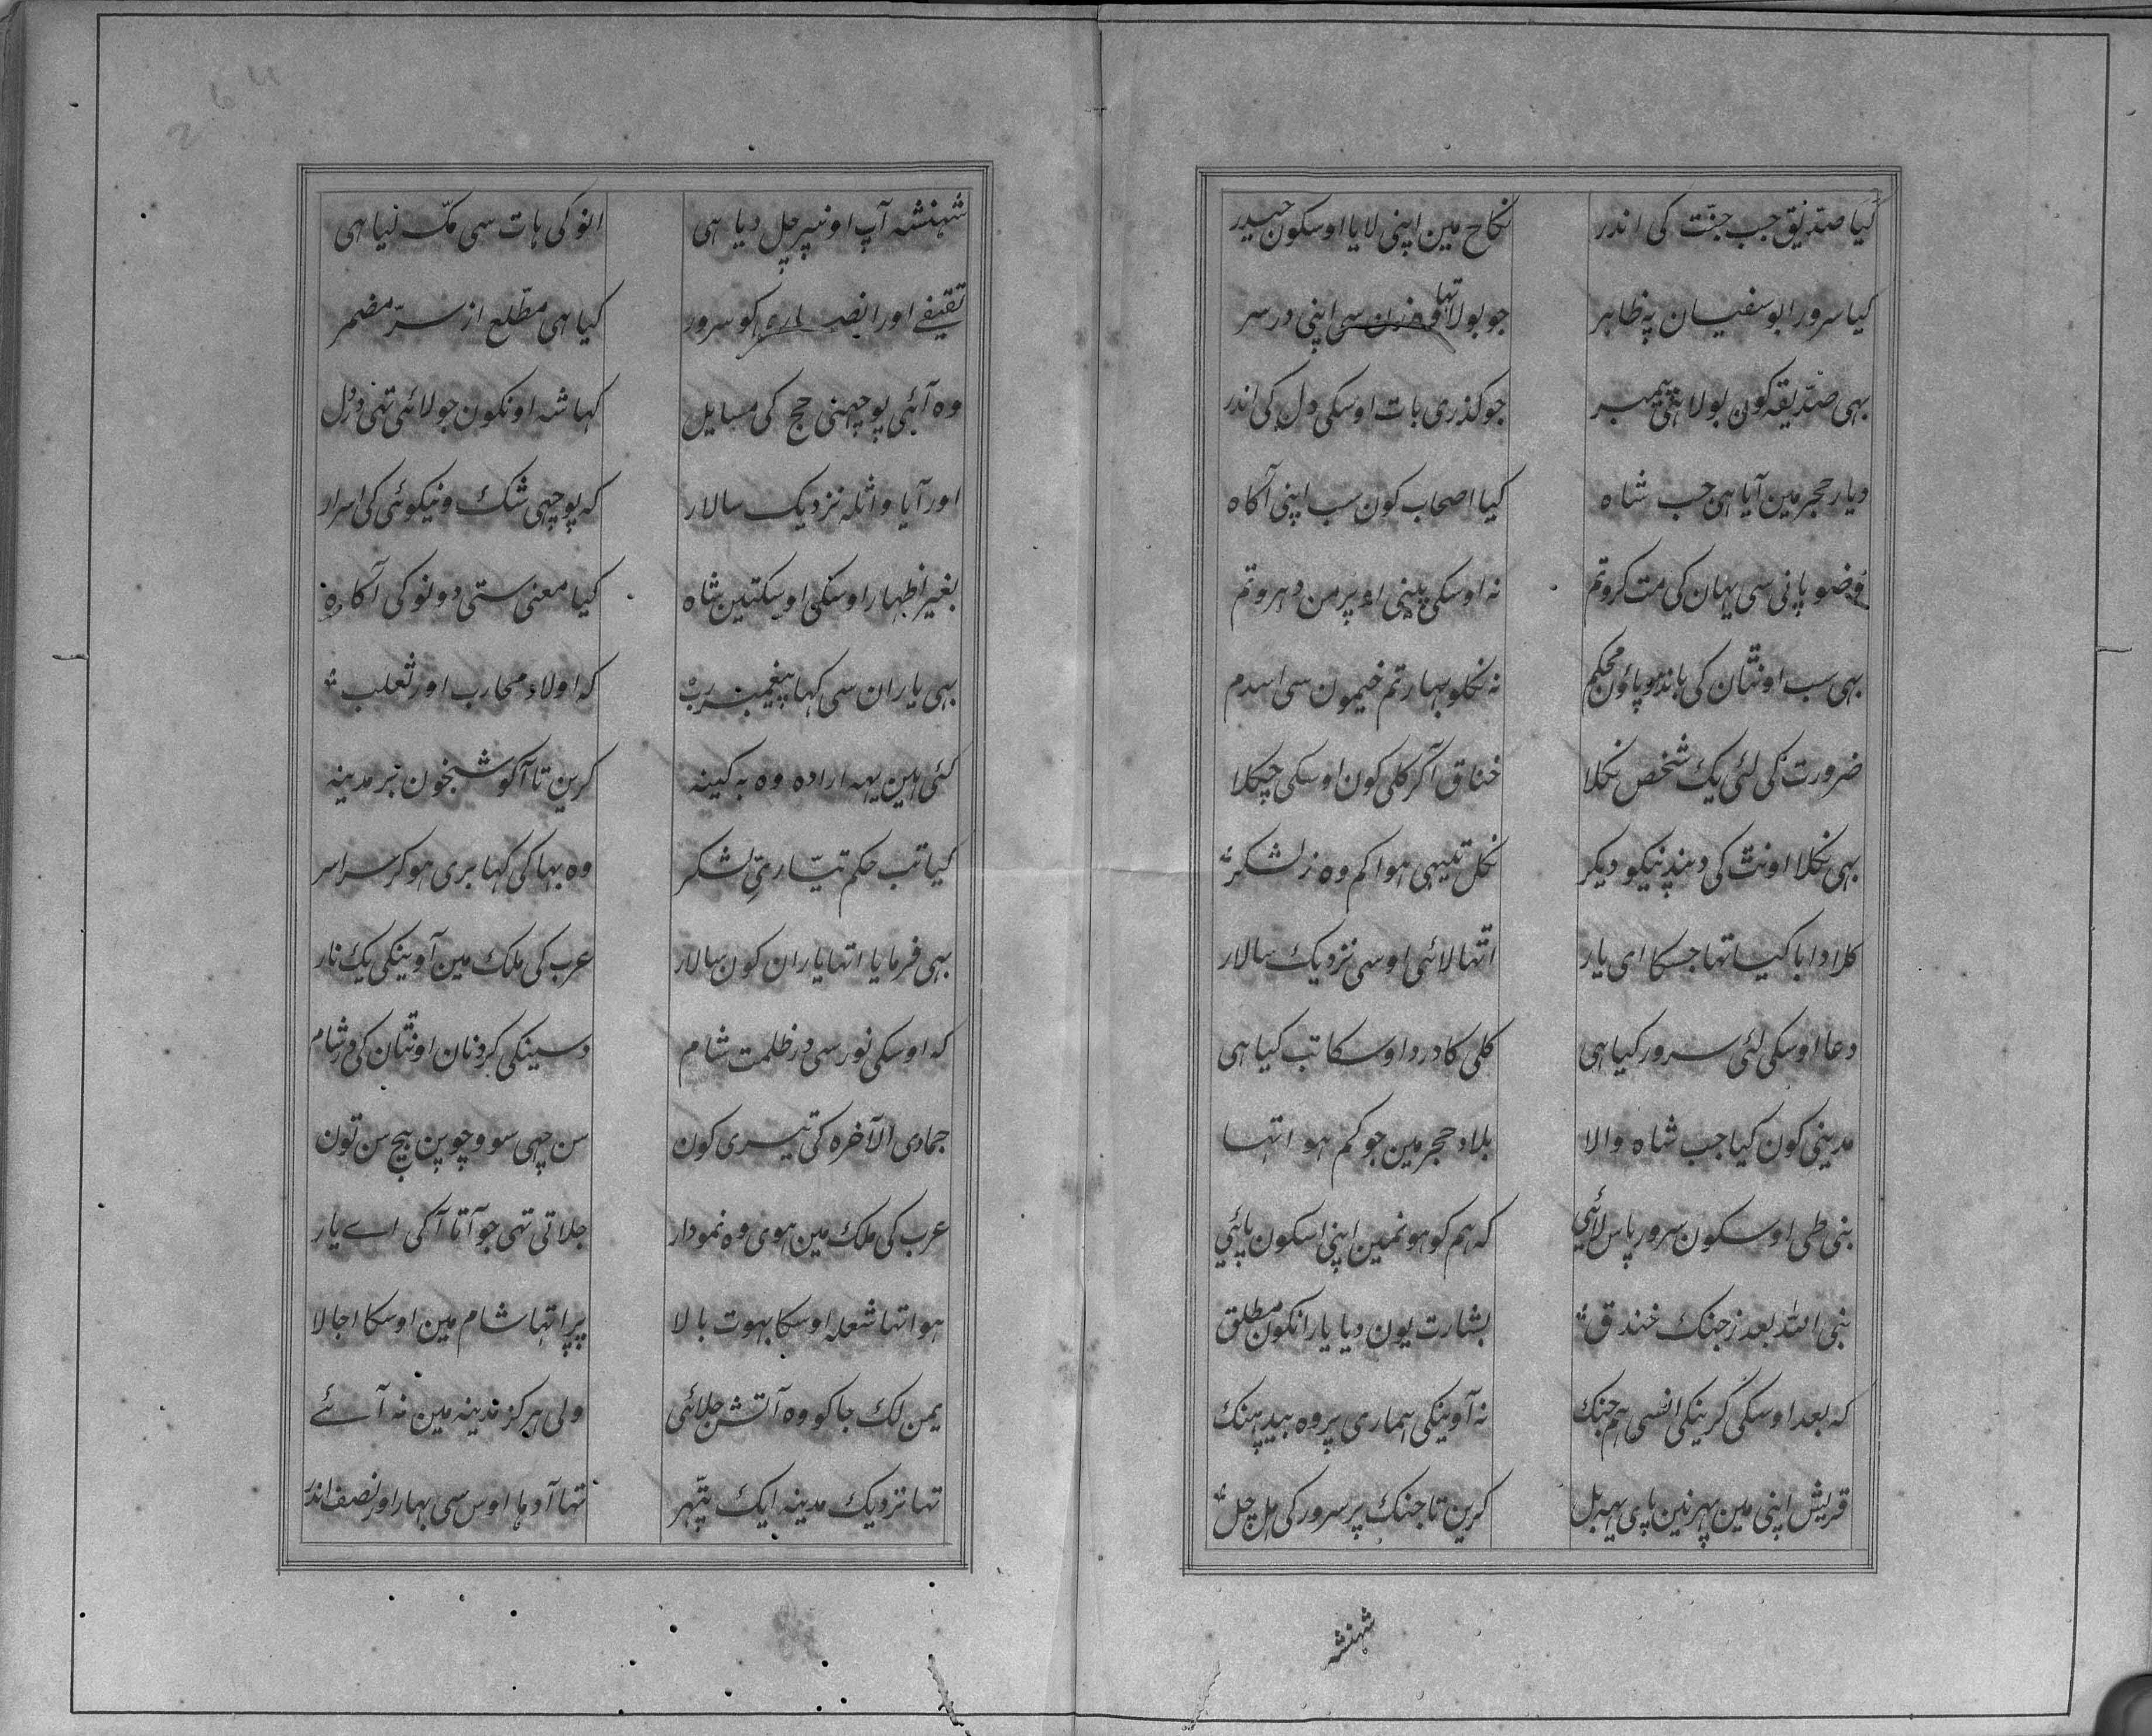 کیا صدیق جب جنّت کی اندر نکاح مین اپنی لایا اوسکون حیدر
کیا سرور ابوسفیان پہ ظاہر جو بولا تہا وہ زن سی اپنی در سر
بہی صدّیقہ کون بولا ہی پیمبر جو کذری بات اوسکی دل کی اندر
دیار حجر مین آیا ہی جب شاہ کیا اصحاب کون سب اپنی آکاہ
وضو پانی سی یہان کی مت کرو تم نہ اوسکی پینی اوپر من دہرو تم
بہی سب اونتان کی باندہو پاؤن محکم نہ نکلو بہار تم خیمون سی اسدم
ضرورت کی لئی یک شخص نکلا خناق آکر کلی کون اوسکی چپکلا
بہی نکلا اونت کی دہند نیکو دیکر نکل تیہی ہوا کم وہ ز لشکر
کلا دابا کیا تہا جسکا ای یار اتہا لائی اوسی نزدیک سالار
دعا اوسکی لئی سرور کیا ہی کلی کا درد اوسکا تب کیا ہی
مدینی کون کیا جب شاہ والا بلاد حجر مین جو کم ہوا تہا
بنی طی اوسکون سرور پاس لائی کہ ہم کوہو نمین اپنی اسکون پائی
نبی اللہ بعد ز جنک خندق بشارت یون دیا یارانکون مطلق
کہ بعد اوسکی کرینکی انسی ہم جنک نہ آوینکی ہماری پر وہ بیدہنک
قریش اپنی مین پہر نین پای یہہ بل کرین تا جنک پر سرور کی ہل چل
شہنشہ
شہنشہ آپ اونپر چل دیا ہی انوکی ہات سی مکّہ لیا ہی
ثقیفی اور انصاری کو سرور کیا ہی مطّلع از سرّ مضمر
وہ آئی پوچہنی حج کی مسایل کہا شہ اونکون جو لائی تہی در دل
اور آیا واثلہ نزدیک سالار کہ پوچہی شک و نیکوئی کی اسرار
بغیر اظہار اوسکی اوسکتین شاہ کیا معنی ستی دونو کی آکاہ
بہی یاران سی کہا پیغمبر رب کہ اولاد محارب اور ثعلب
کئی ہین یہہ ارادہ وہ بہ کینہ کرین تا آکو شبخون بر مدینہ
کیا تب حکم تیّاریِ لشکر وہ بہاکی کہابری ہوکر سراسر
بہی فرمایا اتہا یاران کون سالار عرب کی ملک مین آوینکی یک نار
کہ اوسکی نور سی در ظلمت شام دسینکی کردنان اونتان کی در شام
جمادی الآخرہ کی تیسری کون سن چہی سو و چوپن بیچ سن تون
عرب کی ملک مین ہوی وہ نمودار جلاتی تہی جو آتا آکی اے یار
ہوا تہا شعلہ اوسکا بہوت بالا پرا تہا شام مین اوسکا اجالا
یمن لک جاکو وہ آتش جلائی ولی ہرکز مدینہ مین نہ آئے
تہا نزدیک مدینہ ایک پتّہر تہا آدہا اوس سی بہار اور نصف اندر